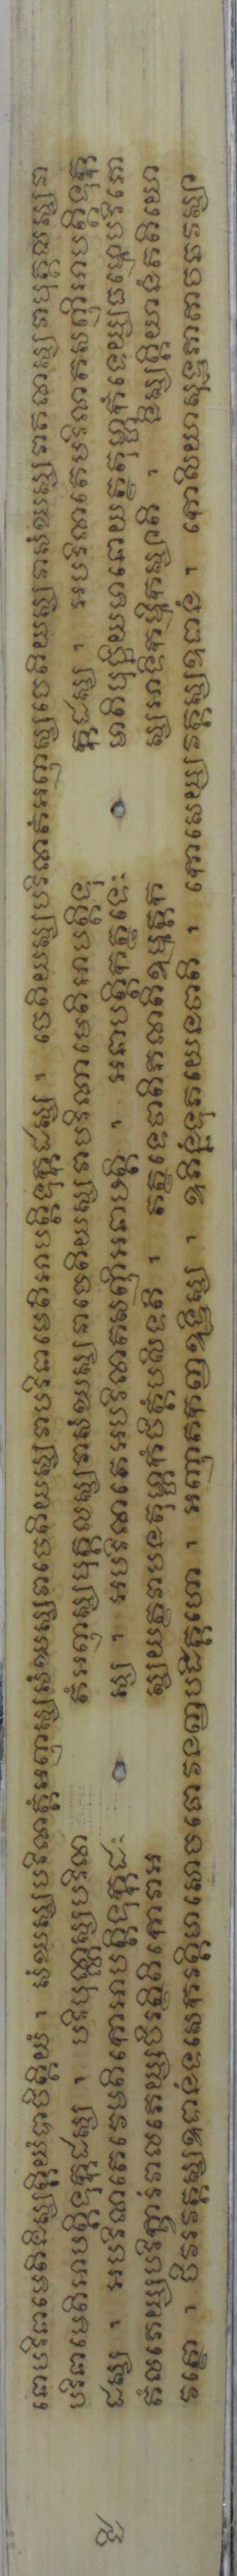 នោបរិណាមេតិនិស្សគ្គិយំបាចិត្តិយំ ។ សំឃស្សបរិណតំអញ្ញស្សសំឃស្សវាចេតិយស្សវាបរិណាមេតិអាបត្តិទុក្កដស្ស ។ ចេតិយស្សបរិណតំអញ្ញស្សចេតិយស្សវាសំឃស្សវាគណស្សវាបុគ្គលស្សវា
បរិណាមេតិអាបត្តិទុក្កដស្ស ។ បរិបុណ្ណស្សបរិណ តំអញ្ញស្សបុគ្គលស្សវាសំឃស្សវាចេតិយស្សវាបរិណាមេតិអាបត្តិទុ ក្កដស្ស ។ អបរិណតេបរិណតសញ្ញីអាបត្តិទុក្ក
ដស្ស ។ អបរិណតេវេមតិកោអាបត្តិទុក្កដ ស្ស ។ អបរិណតេអបរិណតសញ្ញីអនាបត្តិ ។ អនាបត្តិកត្ថទេ មាតិបុច្ឆិយមានោយត្ថតុម្ហាកំទេយ្យធម្មោបរិភោ
គំលភេយ្យបដិក្ខារំវាលភេយ្យចិរដ្ឋិតិកោវាអ ស្សយត្ថវាបនតុម្ហាកំចិត្តំបសីទតិ ។ តត្ថទេថាតិភណតិឧម្មត្តក ស្សអាទិកម្មិកស្សាតិ ។ និស្សគ្គិយានំតតិយោ
វគ្គោ ។ ចីវរវគ្គស្សឧទ្ទានំទសេករត្តិមាសោចធោវនញ្ចបដិគ្គហោ ។ អញ្ញាតកញ្ចឧទ្ទិស្ស ។ ឧភិន្នំទុតយេនចាតិ ។ កោសេយ្យវគ្គស្សឧទ្ទានំ ។ កោសិយាសុទ្ធកាភាចឆវស្សា